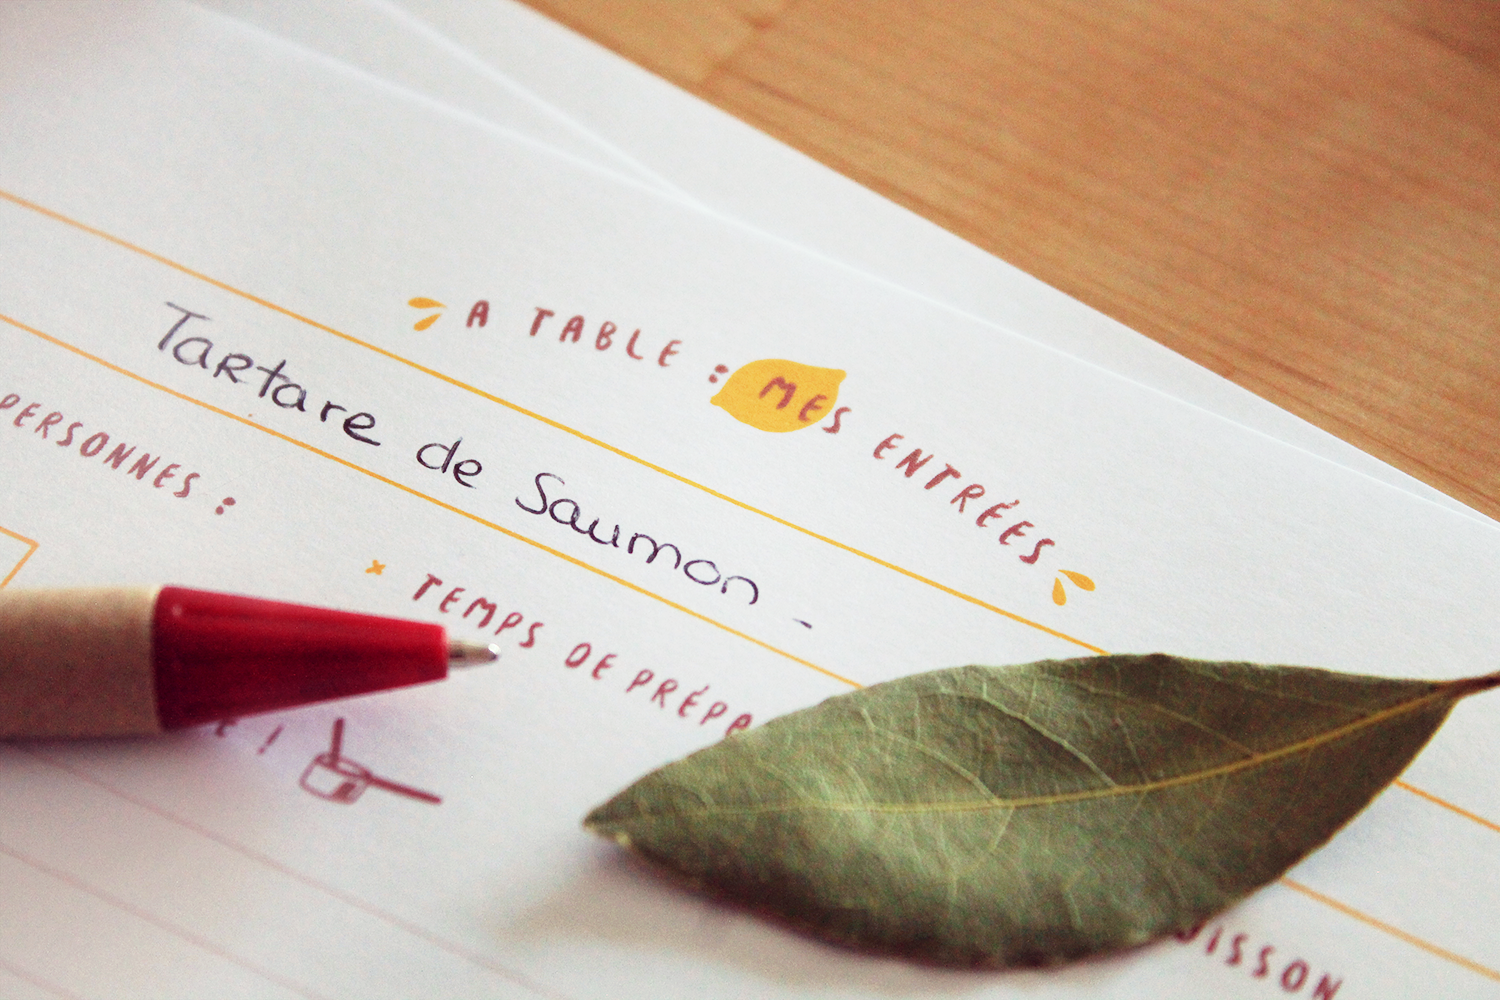 A TABLE : MES ENTRÉES
Tartare de Saumon -
PERSONNES :
× TEMPS DE PRÉPE